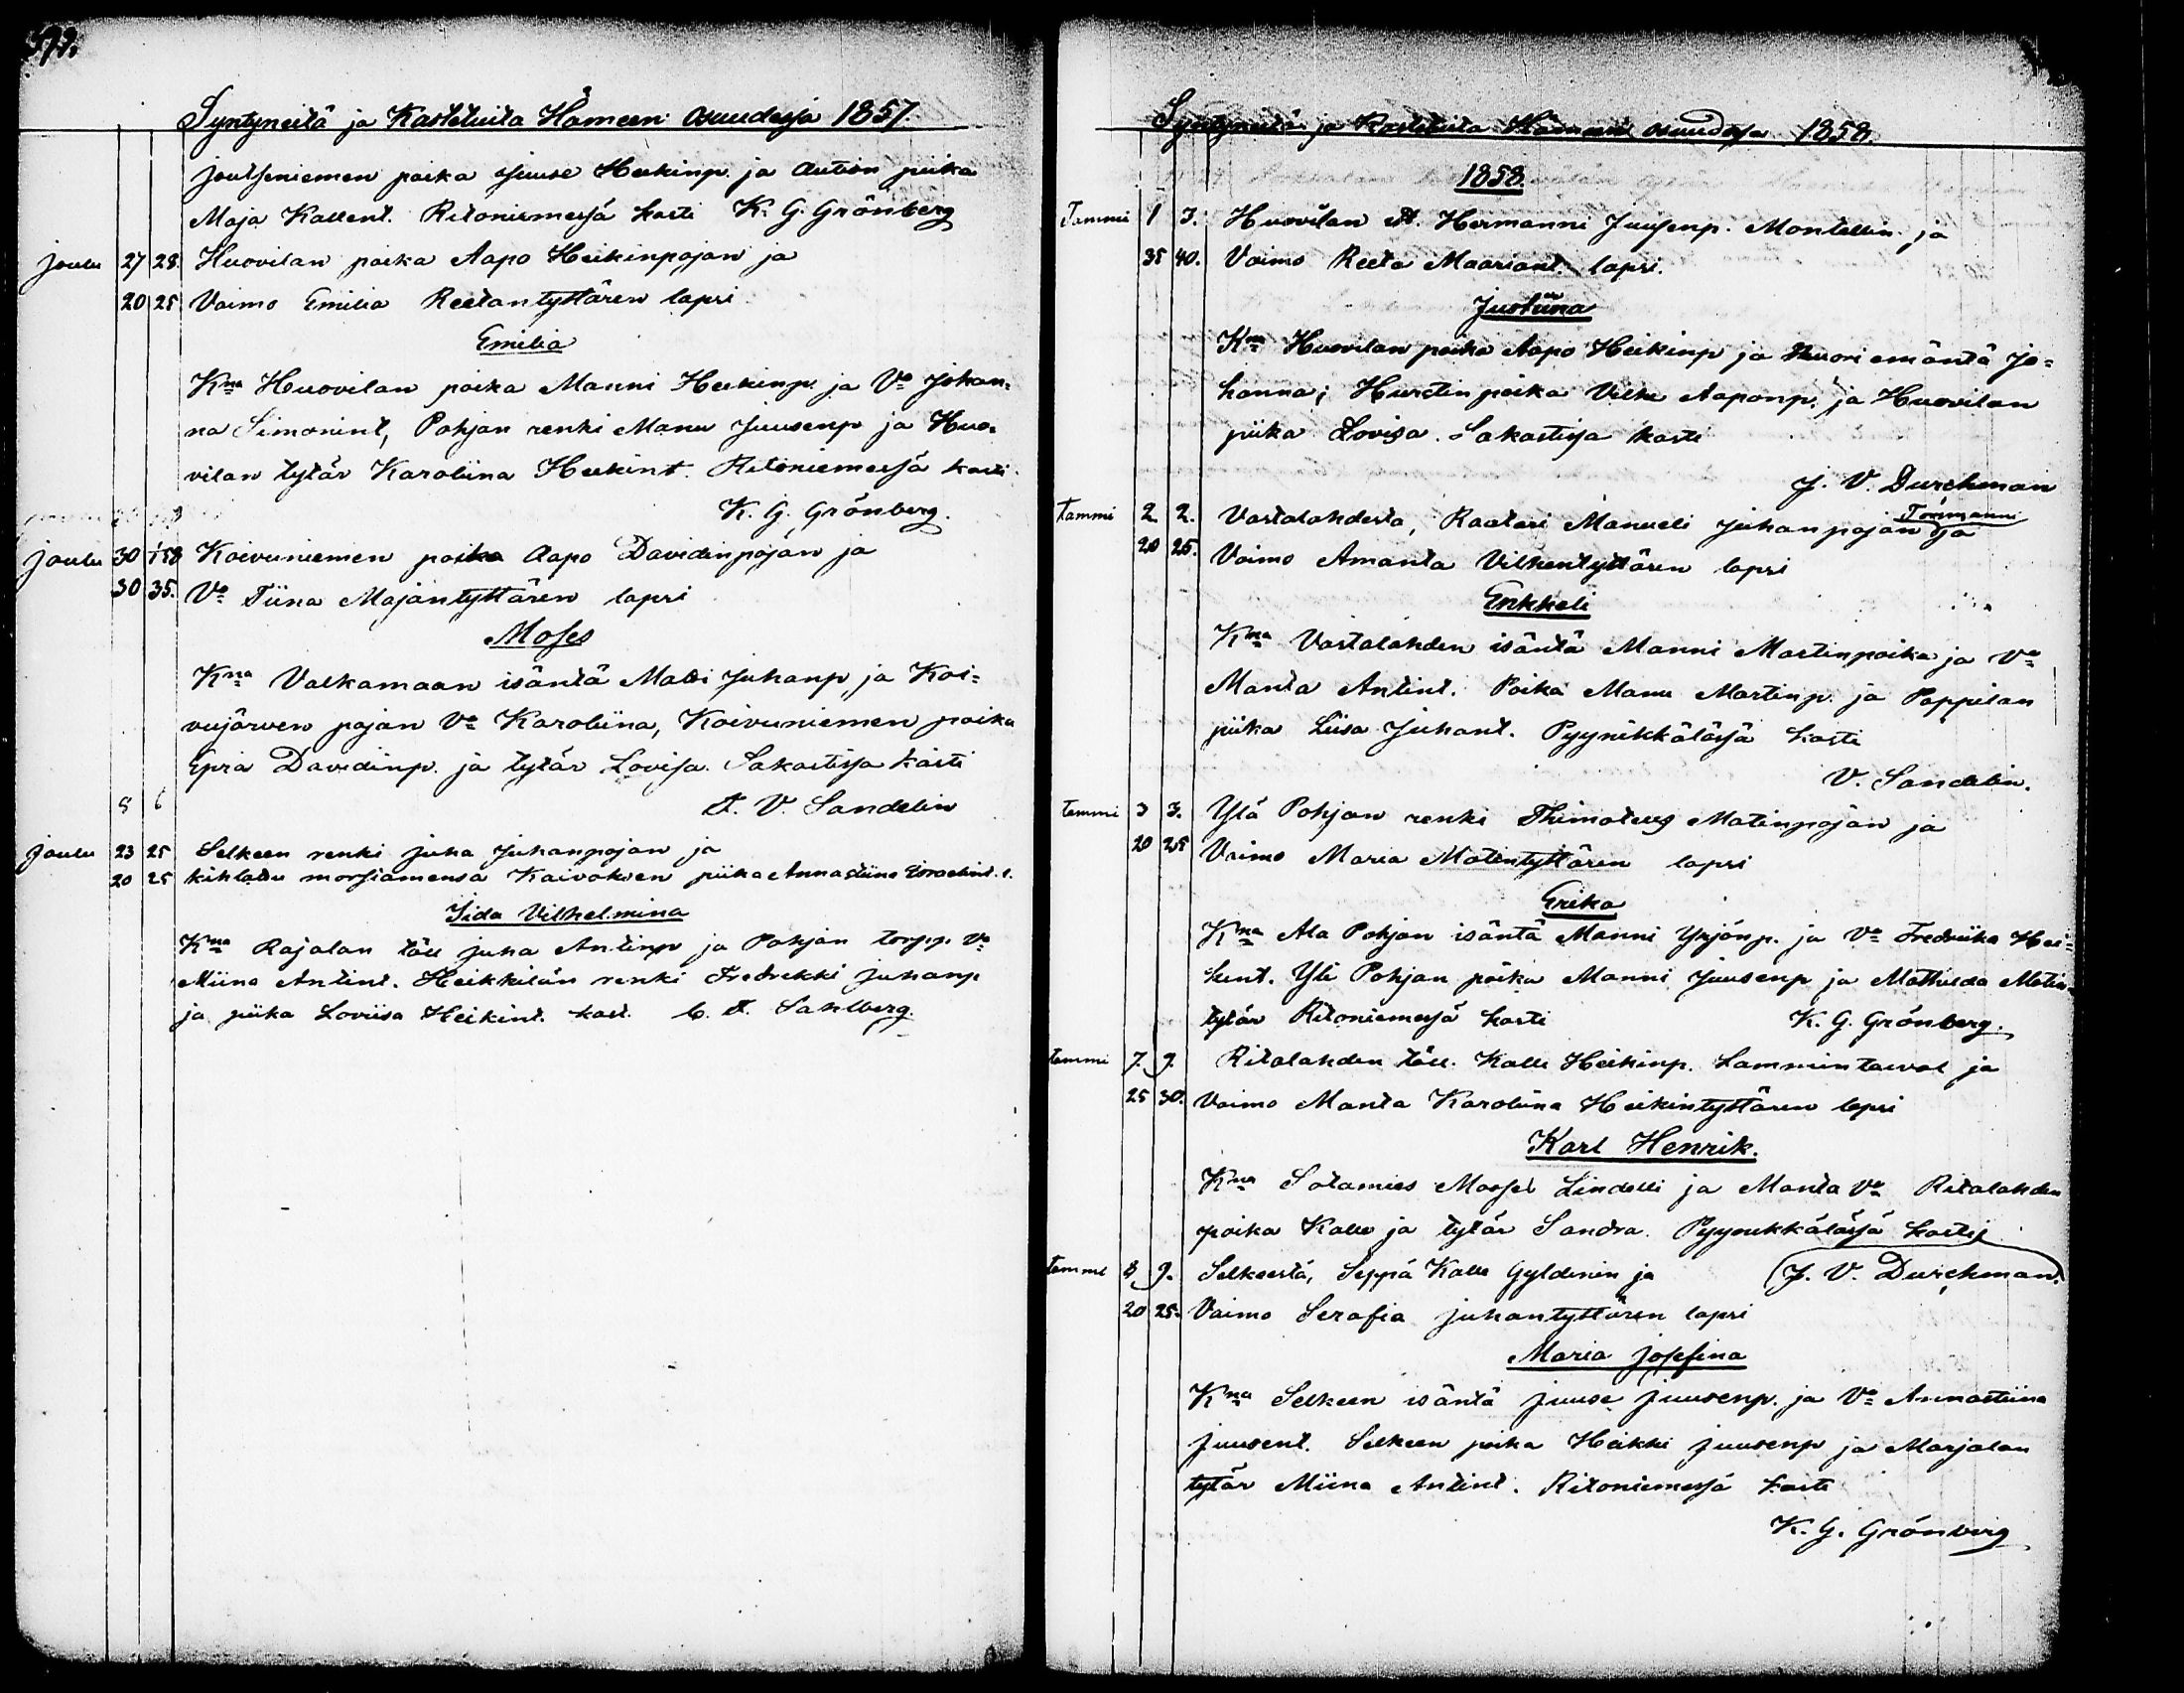 Syntyneitä ja Kastetuita Hämeen osuudessa 1857.
Joutseniemen poika Juuse Heikinp. ja Aution piika
Maja Kallent. Ritoniemessä kasti K. G. Grönberg
Joulu 27 28. Huovilan poika Aapo Heikinpojan ja
20 25 Vaimo Emilia Reetantyttären lapsi
Emilia
Kna Huovilan poika Manni Heikinp. ja Vo Johan=
na Simonint, Pohjan renki Manu Juusenp ja Huo=
vilan tytär Karoliina Heikint. Ritoniemessä kasti.
K. G. Grönberg.
Joulu 30 1/58 Koivuniemen poika Aapo Davidinpojan ja
30 35. Vo Tiina Majantyttären lapsi
Moses
Kna Valkamaan isäntä Matti Juhanp. ja Koi=
vujärven pojan Vo Karoliina, Koivuniemen poika
Epra Davidinp. ja tytär Lovisa. Sakastissa kasti
A. V. Sandelin
5 6
Joulu 23 25 Selkeen renki Juha Juhanpojan ja
20 25 kihlatun morsiamensa Kaivoksen piika Annastiina Israelint. l.
Iida Vilhelmina
Kna Rajalan töll Juha Antinp ja Pohjan torpp. Vo
Miina Antint. Heikkilän renki Fredrikki Juhanp
ja piika Loviisa Heikint. kast. C. A. Sahlberg.
Syntyneitä ja Kastetuita Hämeen osuudessa 1858.
1858.
Tammi 1 3. Huovilan A. Hermanni Juusenp. Montellin, ja
35 40. Vaimo Reeta Maariant. lapsi.
Justiina
Kna Huovilan poika Aapo Heikinp ja Nuori emäntä Jo=
hanna; Hurstin poika Vilke Aaponp. ja Huovilan
piika Lovisa. Sakastissa kasti
J. V. Durchman
Tammi 2. 2. Vastalahdesta, Raatari Manueli Juhanpojan Törnmanni ja
20 25. Vaimo Amanta Vilhentyttären lapsi
Enkkeli
Kna Vastalahden isäntä Manni Martinpoika ja Vo
Manta Antint. Poika Manu Martinp. ja Pappilan
piika Liisa Juhant. Pyynikkälässä kasti
V. Sandelin.
Tammi 3 3. Ylä Pohjan renki Thimoteus Matinpojan ja
20 25 Vaimo Maria Matintyttären lapsi
Erika
Kna Ala Pohjan isäntä Manni Yrjönp. ja Vo Fredriika Hei=
kint. Yli Pohjan poika Manni Juusenp ja Mathilda Matin=
tytär Ritoniemessä kasti K. G. Grönberg.
tammi 7. 9. Ritalahden töll. Kalle Heikinp. Lammintaival ja
25 30. Vaimo Manta Karoliina Heikintyttären lapsi
Karl Henrik.
Kna Sotamies Mooses Lindelli ja Manta Vo Ritalahden
poika Kalle ja tytär Sandra. Pyynikkälässä kasti
J. V. Durchman.
tammi 8 9. Selkeestä, Seppä Kalle Gyldenin ja
20 25. Vaimo Serafia Juhantyttären lapsi
Maria Josefina
Kna Selkeen isäntä Juuse Juusenp. ja Vo Annastiina
Juusent. Selkeen poika Heikki Juusenp ja Marjalan
tytär Miina Antint. Ritoniemessä kasti
K. G. Grönberg